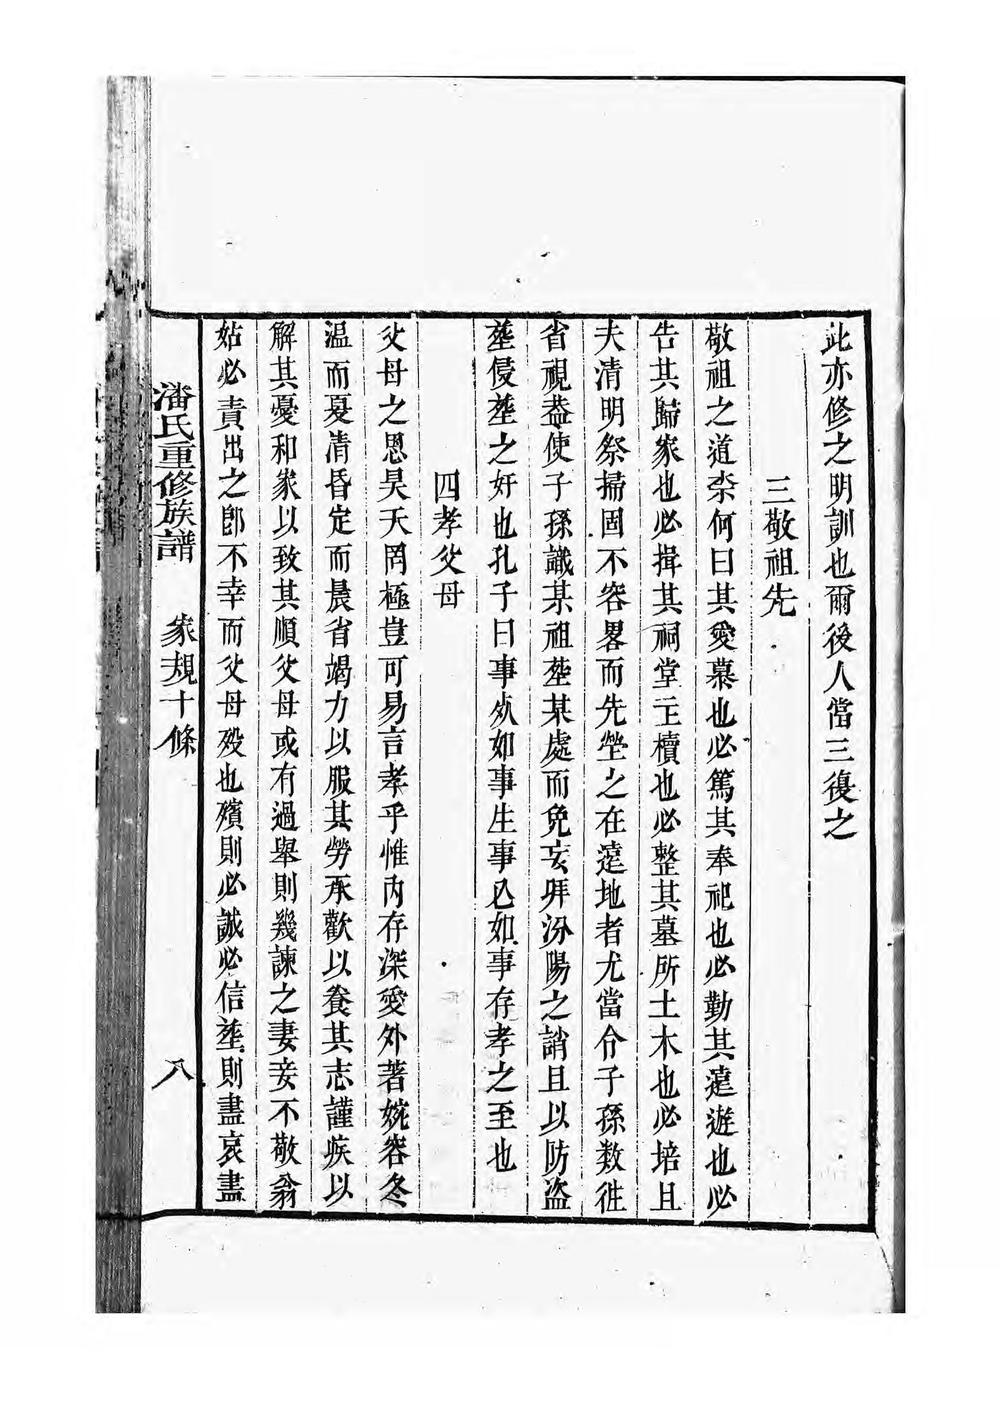 此亦修之明訓也爾後人當三復之
三敬祖先
敬祖之道柰何曰其愛慕也必篤其奉祀也必勤其遠遊也必
告其歸家也必揖其祠堂主櫝也必整其墓所土木也必培且
夫清明祭掃固不容畧而先塋之在遠地者尤當令子孫数徃
省視葢使子孫識某祖塟某處而免妄拜汾陽之誚且以防盗
塟侵塟之奸也孔子曰事死如事生事亡如事存孝之至也
四孝父母
父母之恩昊天罔極豈可易言孝乎惟内存深愛外著婉容冬
温而夏清昏定而晨省竭力以服其勞承歡以養其志謹疾以
解其憂和家以致其順父母或有過舉則幾諫之妻妾不敬翁
姑必責出之卽不幸而父母殁也殯則必誠必信塟則盡哀盡
潘氏重修族譜 家規十條 八